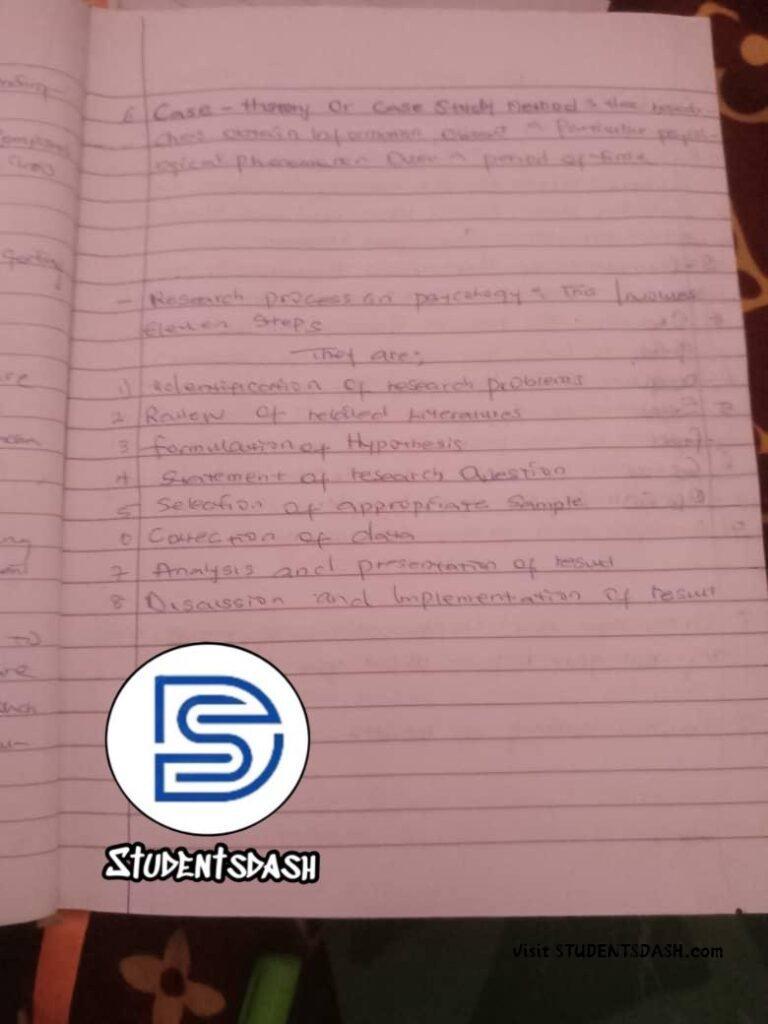 6 Case - History Or Case Study Method :
obtain information about a particular
logical phenomenon Over a period of time
- Research process in psycology : This Involves
Eleven Steps
They are;
1) Identification Of research problems
2 Review Of related Literatures
3 Formulation of Hypothesis
4 Statement of research Question
5 Selection of appropriate Sample
6 Collection of data
7 Analysis and presentation of result
8 Discussion and Implementation Of result
DS
STUDENTSDASH
Visit STUDENTSDASH.com